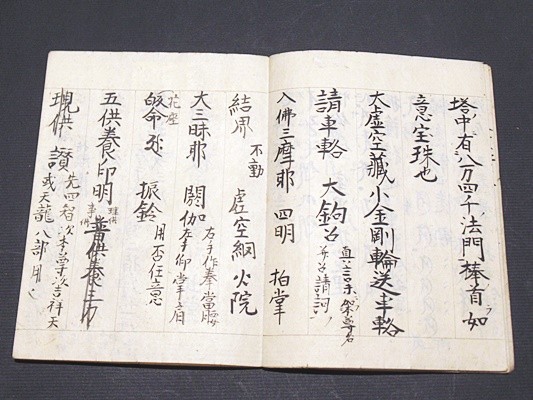 塔中有八万四千法門棒首如
意宝珠也
大虚空藏小金剛輪送車輅
請車輅 大鈎召
真言末
并召請詞
入佛三摩耶 四明 拍掌
結界 不動 虚空網 火院
大三昧耶 閼伽
右手作拳當腰
左手仰掌
花座
振鈴 用否任意
五供養印明 普供養
事供
現供 讃
先四智次本尊次吉祥天
或天龍八部用之